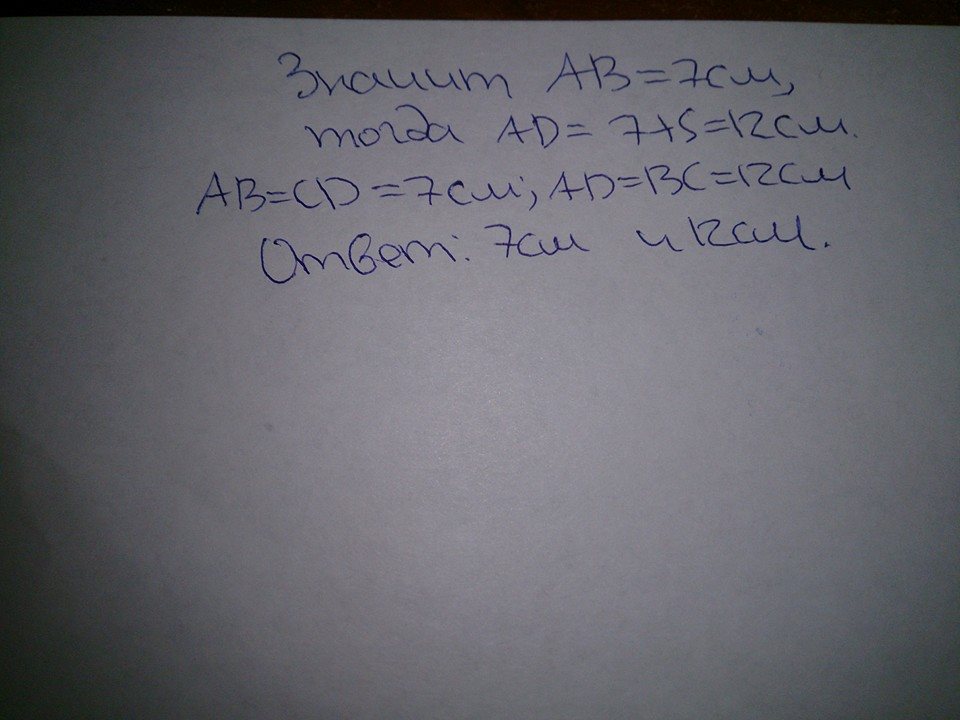 Значит AB=7см,
тогда AD= 7+5=12см.
AB=CD=7см; AD=BC=12см
Ответ: 7см и 12см.